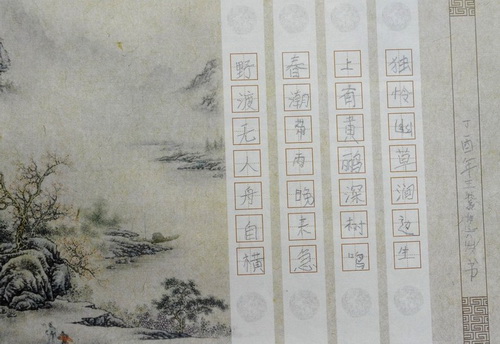 独怜幽草涧边生
上有黄鹂深树鸣
春潮带雨晚来急
野渡无人舟自横
丁酉年三